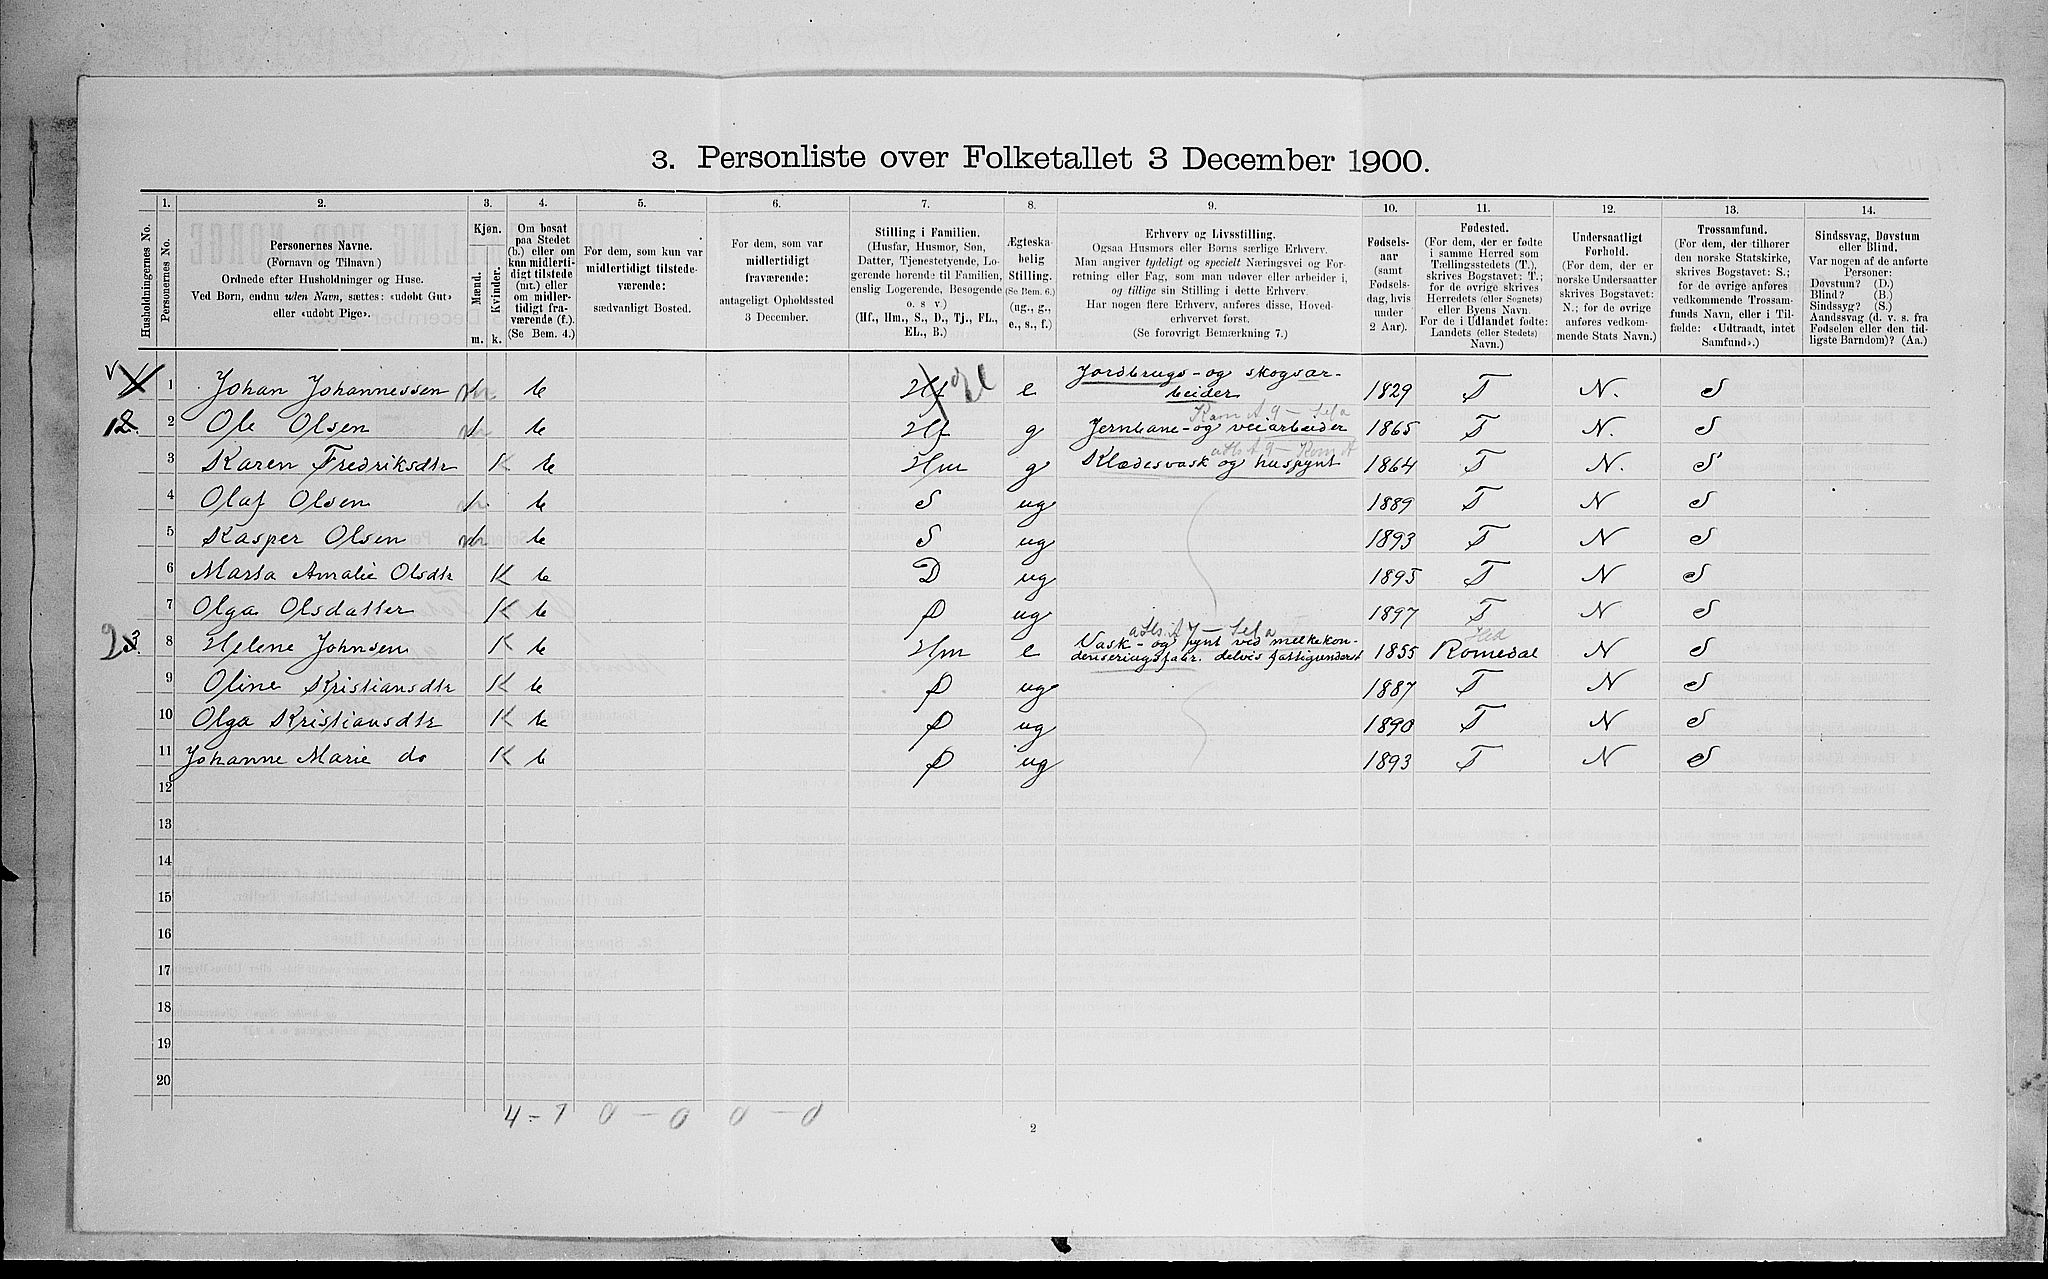 3. Personliste over Folketallet 3 December 1900.
1. 2. 3. 4. 5. 6. 7. 8. 9. 10. 11. 12. 13. 14.
Husholdningernes No.
Personernes No.
Personernes Navne.
(Fornavn og Tilnavn)
Ordnede efter Husholdninger og Huse.
Ved Børn, endnu uden Navn, sættes: «udøbt Gut»
eller «udøbt Pige».
Kjøn.
Mænd.
Kvinder.
m. k.
Om bosat
paa Stedet
(b.) eller om
kun midlerti-
digt tilstede
(mt.) eller
om midler-
tidigt fra-
værende (f.).
(Se Bem. 4.)
For dem, som kun var
midlertidigt tilstede-
værende:
sædvanligt Bosted.
For dem, som var
midlertidigt
fraværende:
antageligt Opholdssted
3 December.
Stilling i Familien.
(Husfar, Husmor, Søn,
Datter, Tjenestetyende, Lo-
gerende hørende til Familien,
enslig Logerende, Besøgende
o. s. v.)
(Hf., Hm., S., D., Tj., FL.,
EL., B.)
Ægteska-
belig
Stilling.
(Se Bem. 6.)
(ug., g.,
e., s., f.)
Erhverv og Livsstilling.
Ogsaa Husmors eller Børns særlige Erhverv.
Man angiver tydeligt og specielt Næringsvei og For-
retning eller Fag, som man udøver eller arbeider i,
og tillige sin Stilling i dette Erhverv.
Har nogen flere Erhverv, anføres disse, Hoved-
erhvervet først.
(Se forøvrigt Bemærkning 7.)
Fødsels-
aar
(samt
Fødsels-
dag, hvis
under
2 Aar).
Fødested.
(For dem, der er fødte
i samme Herred som
Tællingsstedets (T.),
skrives Bogstavet: T.;
for de øvrige skrives
Herredets (eller Sognets)
eller Byens Navn.
For de i Udlandet fødte:
Landets (eller Stedets)
Navn.)
Undersaatligt
Forhold.
(For dem, der er
norske Undersaatter
skrives Bogstavet:
N.; for de øvrige
anføres vedkom-
mende Stats Navn.)
Trossamfund.
(For dem, der tilhører
den norske Statskirke,
skrives Bogstavet: S.;
for de øvrige anføres
vedkommende Trossam-
funds Navn, eller i Til-
fælde: «Udtraadt, intet
Samfund».)
Sindssvag, Døvstum
eller Blind.
Var nogen af de anførte
Personer:
Døvstum? (D.)
Blind? (B.)
Sindssyg? (S.)
Aandssvag (d. v. s. fra
Fødselen eller den tid-
ligste Barndom)? (Aa.)
1 Johan Johannessen m b Hf el e Jordbrugs- og skogsar-
beider 1829 T N. S
12. 2 Ole Olsen m b Hf g Jernbane- og veiarbeider 1865 T N. S
3 Karen Fredriksdtr K b Hm g Klædesvask og huspynt 1864 T N. S
4 Olaf Olsen m b S ug 1889 T N S
5 Kasper Olsen m b S ug 1893 T N S
6 Marta Amalie Olsdtr K b D ug 1895 T N S
7 Olga Olsdatter K b D ug 1897 T N S
2 3. 8 Helene Johnsen K b Hm e Vask- og pynt ved melkekon-
denseringsfabr. delvis fattigunderst 1855 Romedal N S
Hed
9 Oline Kristiansdtr K b D ug 1887 T N S
10 Olga Kristiansdtr K b D ug 1890 T N S
11 Johanne Marie do K b D ug 1893 T N S
12
13
14
15
16
17
18
19
20
4 - 7 0 - 0 0 - 0
2